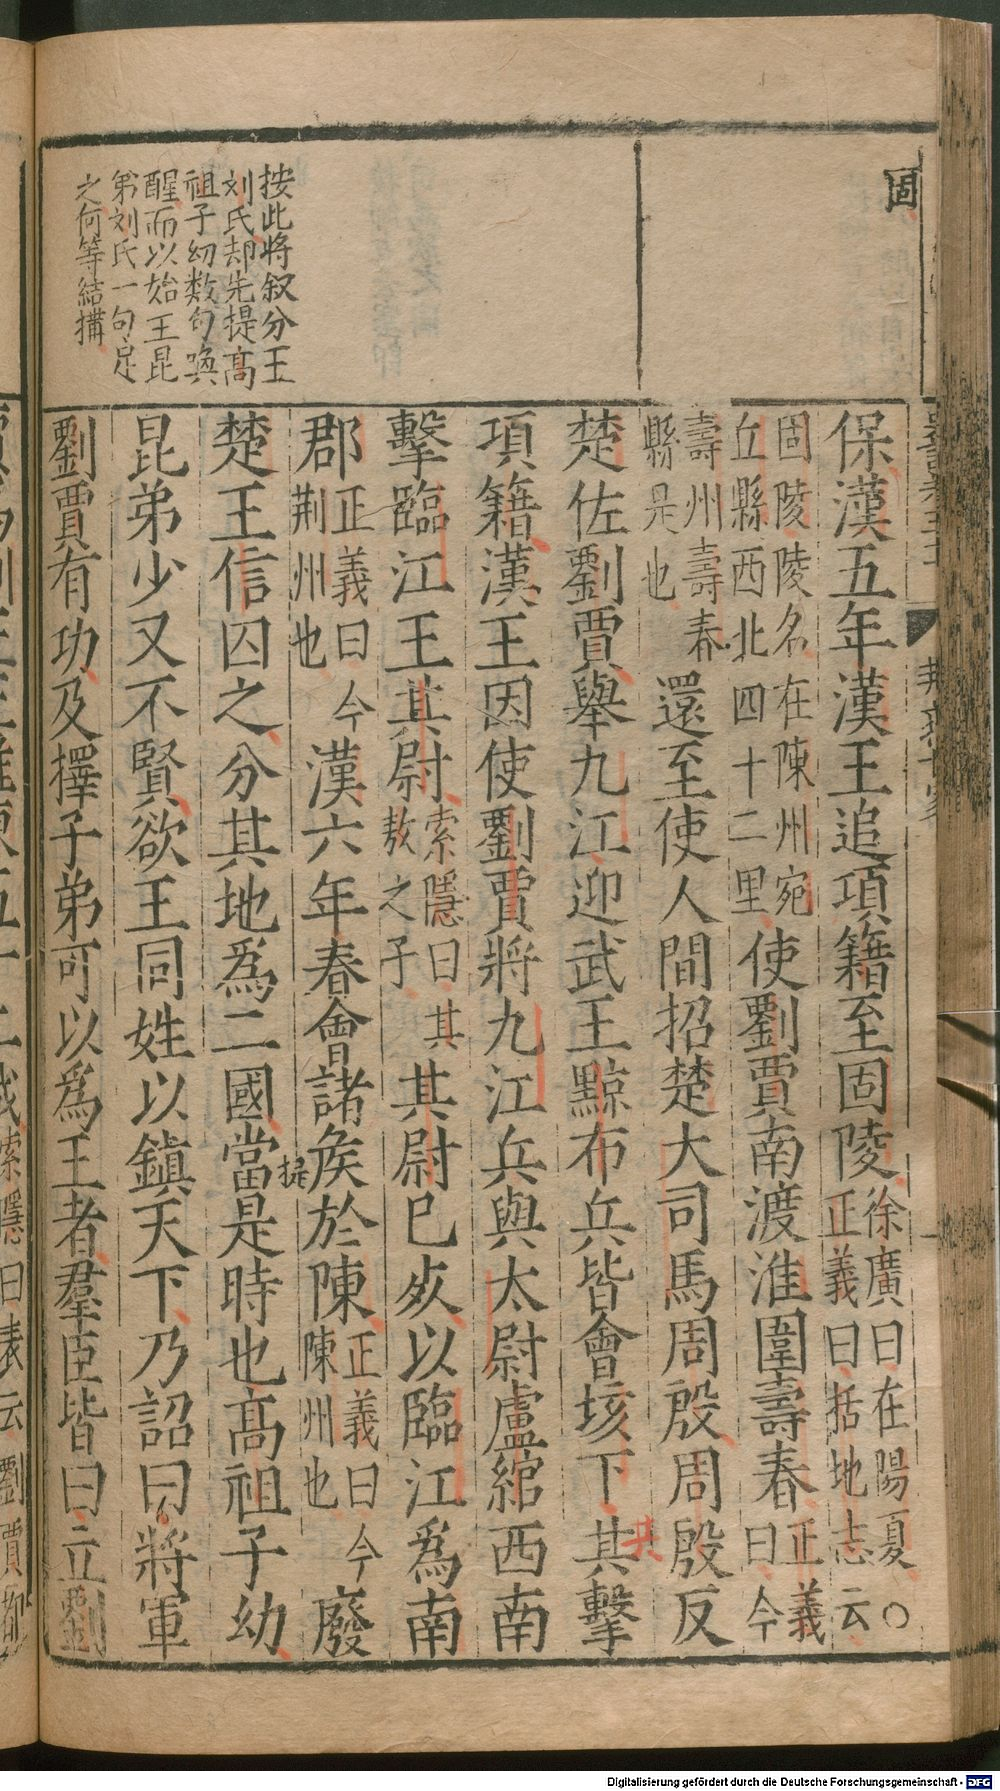 固
按此將叙分王
刘氏却先提髙
祖子幼数句喚
醒而以始王昆
弟刘氏一句足
之何等結搆
保漢五年漢王追項籍至固陵徐廣曰在陽夏○正義曰括地志云
固陵陵名在陳州宛丘縣西北四十二里使劉賈南渡淮圍壽春正義曰今
壽州壽春縣是也還至使人間招楚大司馬周殷周殷反
楚佐劉賈舉九江迎武王黥布兵皆會垓下其擊
共
項籍漢王因使劉賈將九江兵與太尉盧綰西南
擊臨江王其尉索隱曰其敖之子其尉已死以臨江爲南
郡正義曰今荆州也漢六年春會諸矦於陳正義曰今陳州也廢
提
楚王信囚之分其地爲二國當是時也髙祖子幼
昆弟少又不賢欲王同姓以鎮天下乃詔曰將軍
劉賈有功及擇子弟可以爲王者羣臣皆曰立劉
索隱曰表云劉賈都
Digitalisierung gefördert durch die Deutsche Forschungsgemeinschaft - DFG